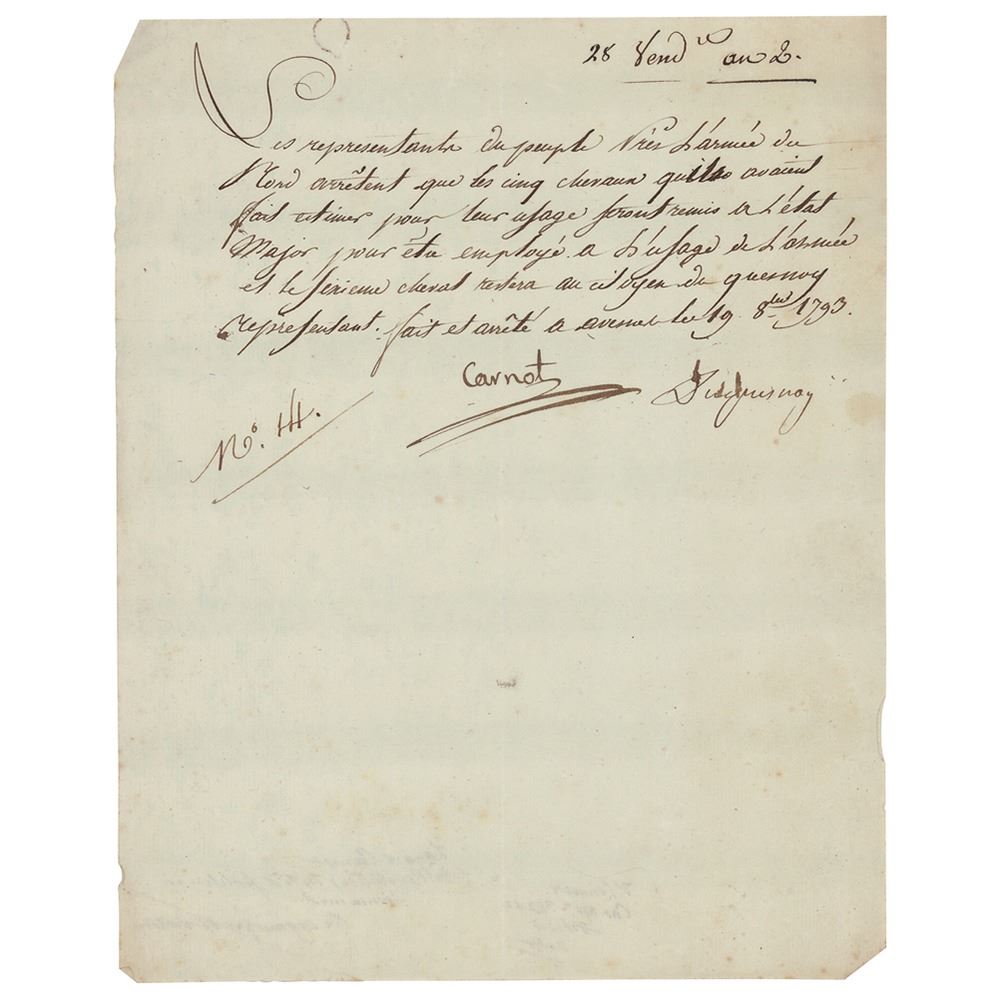 28 Vend^re an 2.
Les representants du peuple Près L'armée du
Nord arrêtent que les cinq chevaux quils avaient
fait estimer pour leur usage seront remis a L'état
Major pour être employé a L'usage de L'armée
et le sixieme cheval restera au citoyen du quesnoy
representant. fait et arrêté a avesnes le 19 8^bre 1793.
Carnot Duquesnoy
N.° 14.